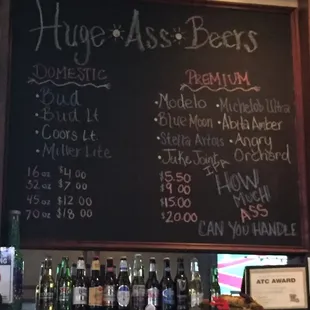 Huge * Ass * Beers
DOMESTIC
• Bud
• Bud Lt
• Coors Lt.
• Miller Lite
16 oz $4.00
32 oz $7.00
45 oz $12.00
70 oz $18.00
PREMIUM
• Modelo • Michelob Ultra
• Blue Moon • Abita Amber
• Stella Artois • Angry Orchard
• Juke Joint IPA
$5.50
$9.00
$15.00
$20.00
HOW
MUCH
ASS
CAN YOU HANDLE
ATC AWARD